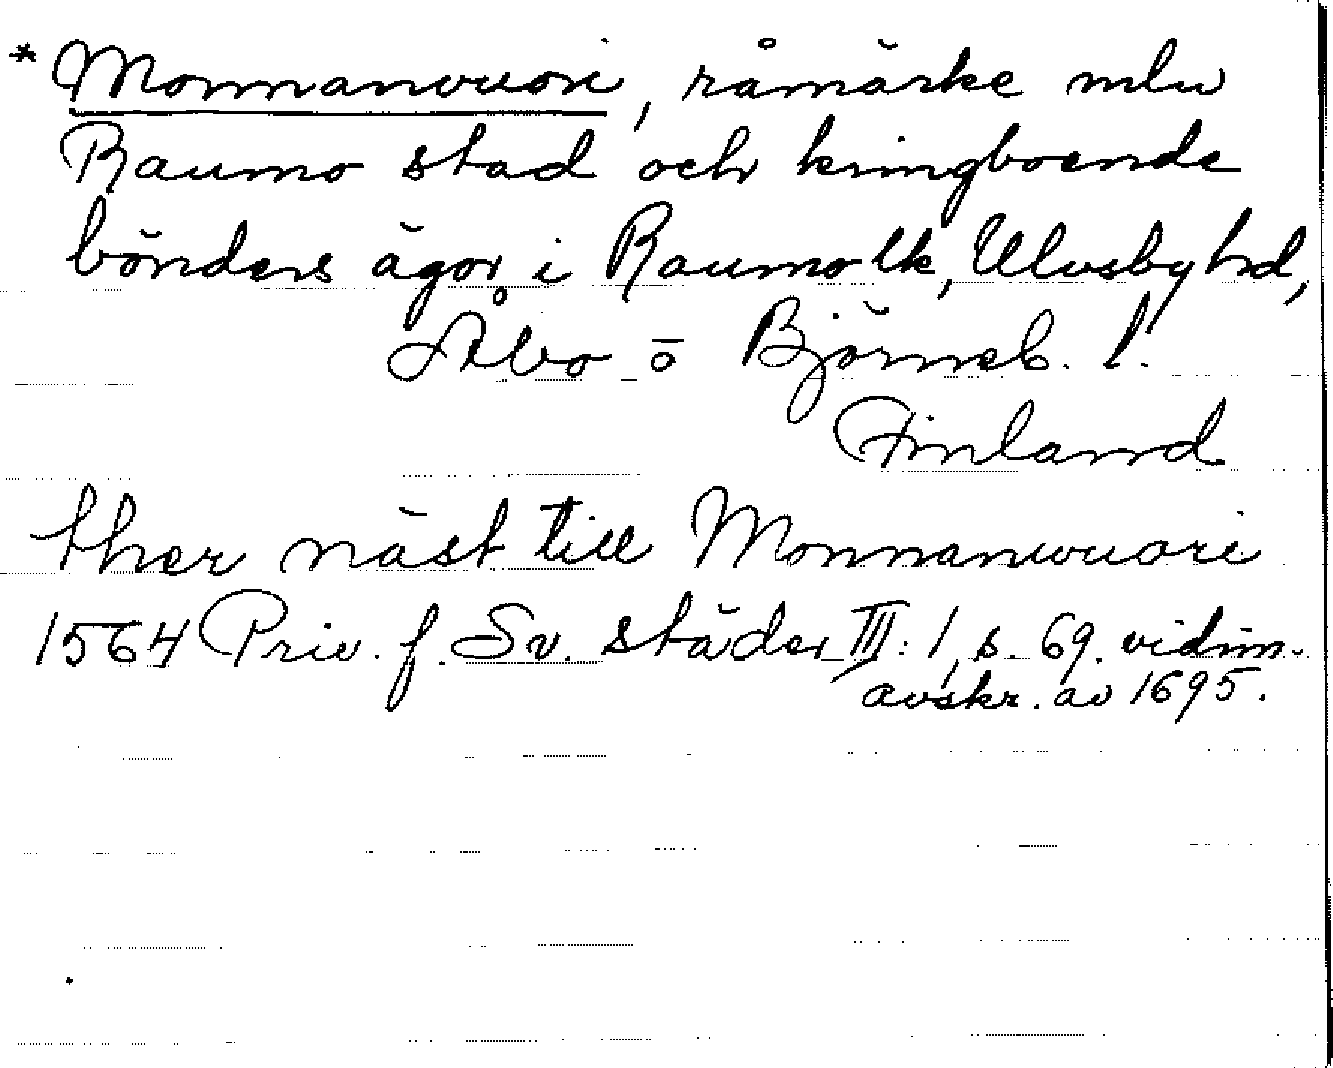 * Monnanvuori, råmärke mlu
Raumo stad och kringboende
bönders ägor i Raumo lk, Ulvsby hd,
Åbo o Björneb. l.
Finland
ther näst till Monnanwuori
1564 Priv. f. Sv. städer III: 1, s. 69. vidim.
avskr. av 1695.